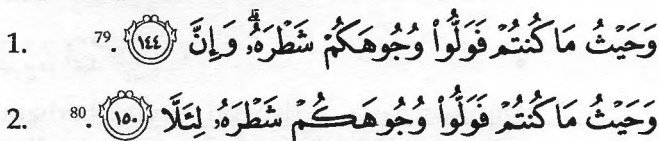 1. وَحَيْثُ مَا كُنتُمْ فَوَلُّوا۟ وُجُوهَكُمْ شَطْرَهُۥ ۗ وَإِنَّ ﴿١٤٤﴾ .79
2. وَحَيْثُ مَا كُنتُمْ فَوَلُّوا۟ وُجُوهَكُمْ شَطْرَهُۥ لِئَلَّا ﴿١٥٠﴾ .80